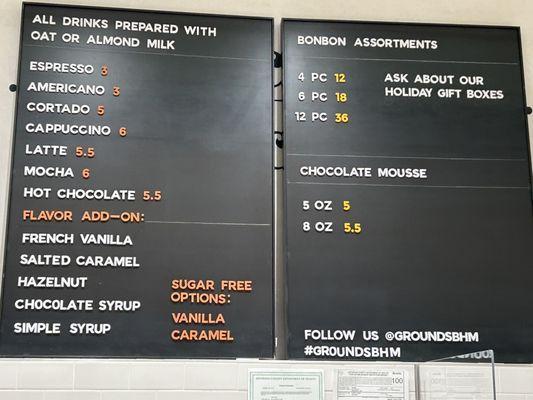 ALL DRINKS PREPARED WITH
OAT OR ALMOND MILK
ESPRESSO 3
AMERICANO 3
CORTADO 5
CAPPUCCINO 6
LATTE 5.5
MOCHA 6
HOT CHOCOLATE 5.5
FLAVOR ADD-ON:
FRENCH VANILLA
SALTED CARAMEL
HAZELNUT
CHOCOLATE SYRUP
SIMPLE SYRUP
SUGAR FREE
OPTIONS:
VANILLA
CARAMEL
BONBON ASSORTMENTS
4 PC 12
6 PC 18
12 PC 36
ASK ABOUT OUR
HOLIDAY GIFT BOXES
CHOCOLATE MOUSSE
5 OZ 5
8 OZ 5.5
FOLLOW US @GROUNDSBHM
#GROUNDSBHM
100